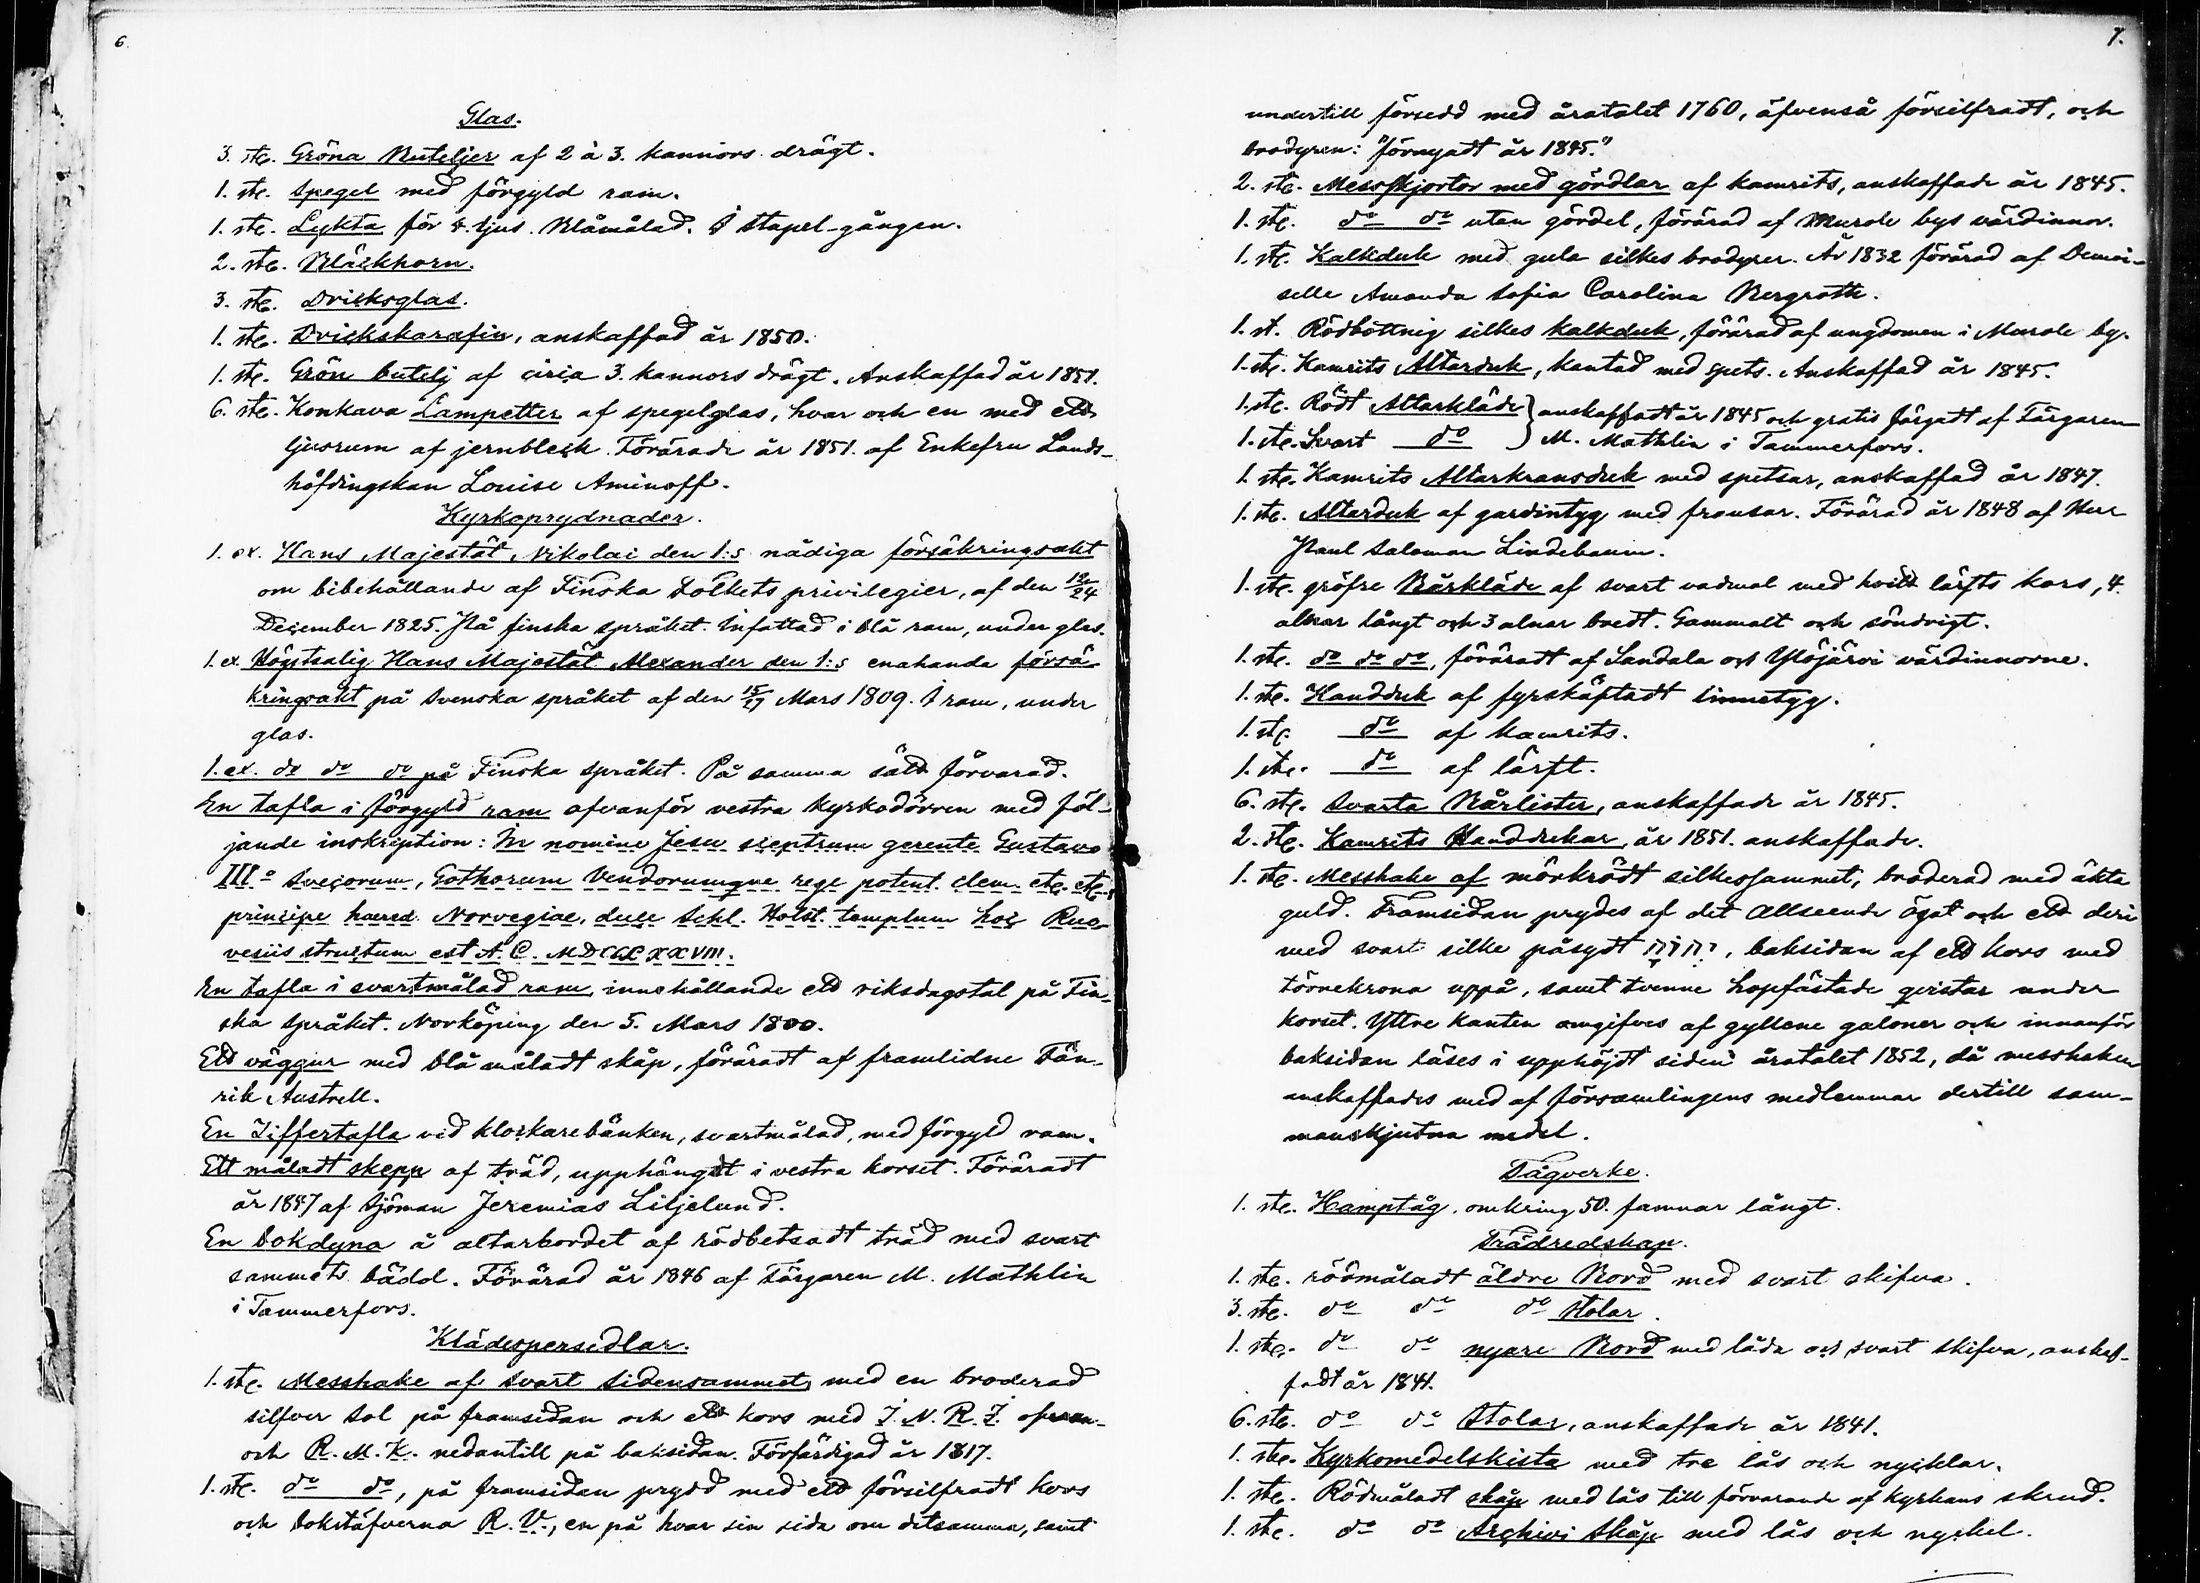 6.
Glas.
3. ste. Gröna Buteljer af 2 à 3. kannors drägt.
1. ste. Spegel med förgyld ram.
1. ste. Lykta för 4. ljus. Blåmålad. I stapel-gången.
2. ste. Bläckhorn.
3. ste. Dricksglas.
1. ste. Drickskarafin, anskaffad år 1850.
1. ste. Grön butelj af circa 3. kannors drägt. Anskaffad år 1851.
6. ste. Konkava Lampetter af spegelglas, hvar och en med ett
ljusrum af jernbleck. Förärade år 1851. af Enkefru Lands-
höfdingskan Louise Aminoff.
Kyrkoprydnader.
1. ex. Hans Majestät, Nikolai den 1:s nådiga försäkringsakt
om bibehållande af Finska Folkets privilegier, af den 12/24
December 1825. På finska språket. Infattad i blå ram, under glas.
1. ex. Högtsalig Hans Majestät Alexander den 1:s enahanda försä-
kringsakt på Svenska språket af den 15/27 Mars 1809. I ram, under
glas.
1. ex. do do do på Finska språket. På samma sätt förvarad.
En tafla i förgyld ram ofvanför vestra kyrkodörren med föl-
jande inskription: In nomine Jesu sceptrum gerente Gustavo
III o Svecorum, Gothorum Vendorumque rege potent. clem. etc. etc.
principe haered. Norvegiae, duce Schl. Holst. templum hoc Ruo-
vesiis structum est A. C. MDCCLXXVIII.
En tafla i svartmålad ram, innehållande ett riksdagstal på Fin-
ska språket. Norköping den 5. Mars 1800.
Ett väggur med blå måladt skåp, förärädt af framlidne Fän-
rik Austrell.
En Ziffertafla vid klockarebänken, svartmålad, med förgyld ram.
Ett måladt skepp af träd, upphängdt i vestra korset. Föräradt
år 1847 af Sjöman Jeremias Liljelund.
En bokdyna å altarbordet af rödbetsadt träd med svart
sammets bädd. Förärad år 1846 af Färgaren M. Mathlin
i Tammerfors.
Klädespersedlar.
1. ste. Messhake af svart sidensammet, med en broderad
silfver sol på framsidan och ett kors med I. N. R. I. ofvan-
och R. M. K. nedantill på baksidan. Förfärdigad år 1817.
1. ste. do do, på framsidan prydd med ett försilfradt kors
och bokstäfverna R. V., en på hvar sin sida om detsamma, samt
7.
undertill försedd med åratalet 1760, äfvenså försilfradt, och
brodyren: "förnyadt år 1845."
2. ste. Messskjortor med gördlar af kamrits, anskaffade år 1845.
1. ste. do do utan gördel, förärad af Murole bys värdinnor.
1. ste. Kalkduk med gula silkes brodyrer. År 1832 förärad af Demoi-
selle Amanda Sofia Carolina Bergroth.
1. st. Rödbottnig silkes kalkduk, förärad af ungdomen i Murole by.
1. ste. Kamrits Altarduk, kantad med spets. Anskaffad år 1845.
1. ste. Rödt Altarkläde } anskaffadt år 1845 och gratis färgadt af Färgaren
1. ste. Svart do } M. Mathlin i Tammerfors.
1. ste. Kamrits Altarkransduk med spetsar, anskaffad år 1847.
1. ste. Altarduk af gardintyg med fransar. Förärad år 1848 af Herr
Paul Salomon Lindebaum.
1. ste. gröfre Bårkläde af svart vadmal med hvitt lärfts kors, 4.
alnar långt och 3 alnar bredt. Gammalt och söndrigt.
1. ste. do do do, föräradt af Sandala och Ylöjärvi värdinnorne.
1. ste. Handduk af fyrskäftadt linnetyg.
1. ste. do af kamrits.
1. ste. do af lärft.
6. ste. Svarta Bårlister, anskaffade år 1845.
2. ste. Kamrits Handdukar, år 1851. anskaffade.
1. ste. Messhake af mörkrödt silkessammet, broderad med äkta
guld. Framsidan prydes af det Allseende ögat och ett deri
med svart silke påsydt יהוה, baksidan af ett kors med
törnekrona uppå, samt tvenne hopfästade qvistar under
korset. Yttre kanten omgifves af gyllene galoner och innanför
baksidan läses i upphöjdt siden åratalet 1852, då messhaken
anskaffades med af församlingens medlemmar dertill sam-
manskjutna medel.
Tågverke.
1. ste. Hamptåg, omkring 50. famnar långt.
Trädredskap.
1. ste. rödmåladt äldre Bord med svart skifva.
3. ste. do do do Stolar.
1. ste. do do nyare Bord med låda och svart skifva, anskaf-
fadt år 1841.
6. ste. do do Stolar, anskaffade år 1841.
1. ste. Kyrkomedelskista med tre lås och nycklar.
1. ste. Rödmåladt skåp med lås till förvarande af kyrkans skrud.
1. ste. do do Archivi skåp med lås och nyckel.